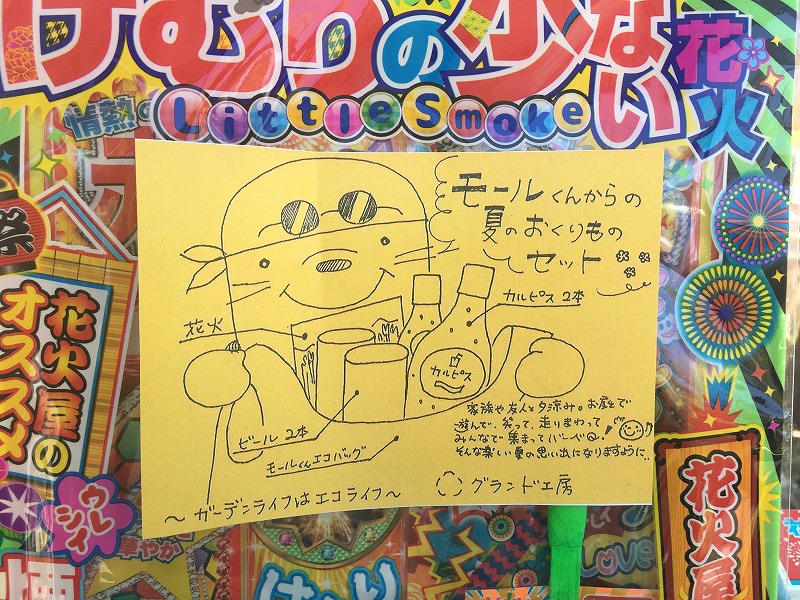 けむりの少ない花火
Little Smoke
情熱の
祭
花火屋のオススメ
ウレシイ
華やか
モールくんからの
夏のおくりもの
セット
カルピス 2本
花火
カルピス
ビール 2本
モールくんエコバッグ
家族や友人と夕涼み。お庭で
遊んで、笑って、走りまわって
みんなで集まってバーベQ!
そんな楽しい夏の思い出になりますように..
〜ガーデンライフはエコライフ〜
グランド工房
花火屋
LOVE